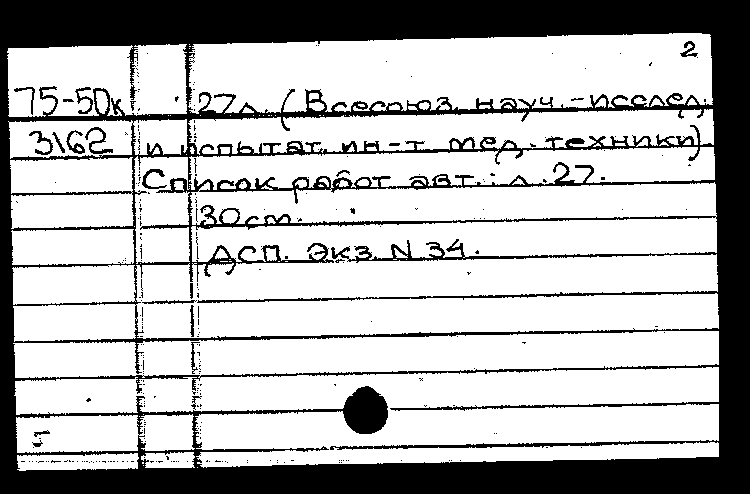 2
75-50к 27л. (Всесоюз. науч.-исслед.
3162 и испытат. ин-т мед. техники).
Список работ авт.: л. 27.
30см.
ДСП. Экз. N 34.